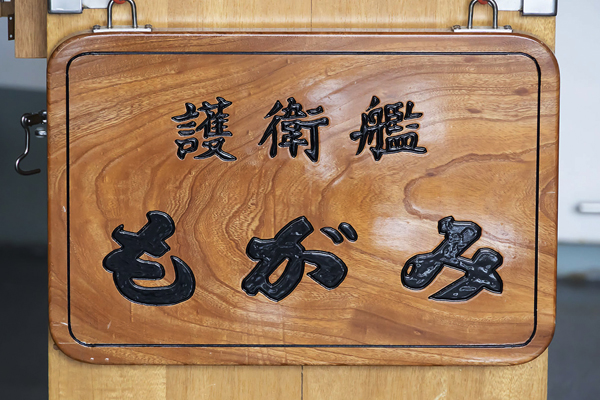 護衛艦
もがみ